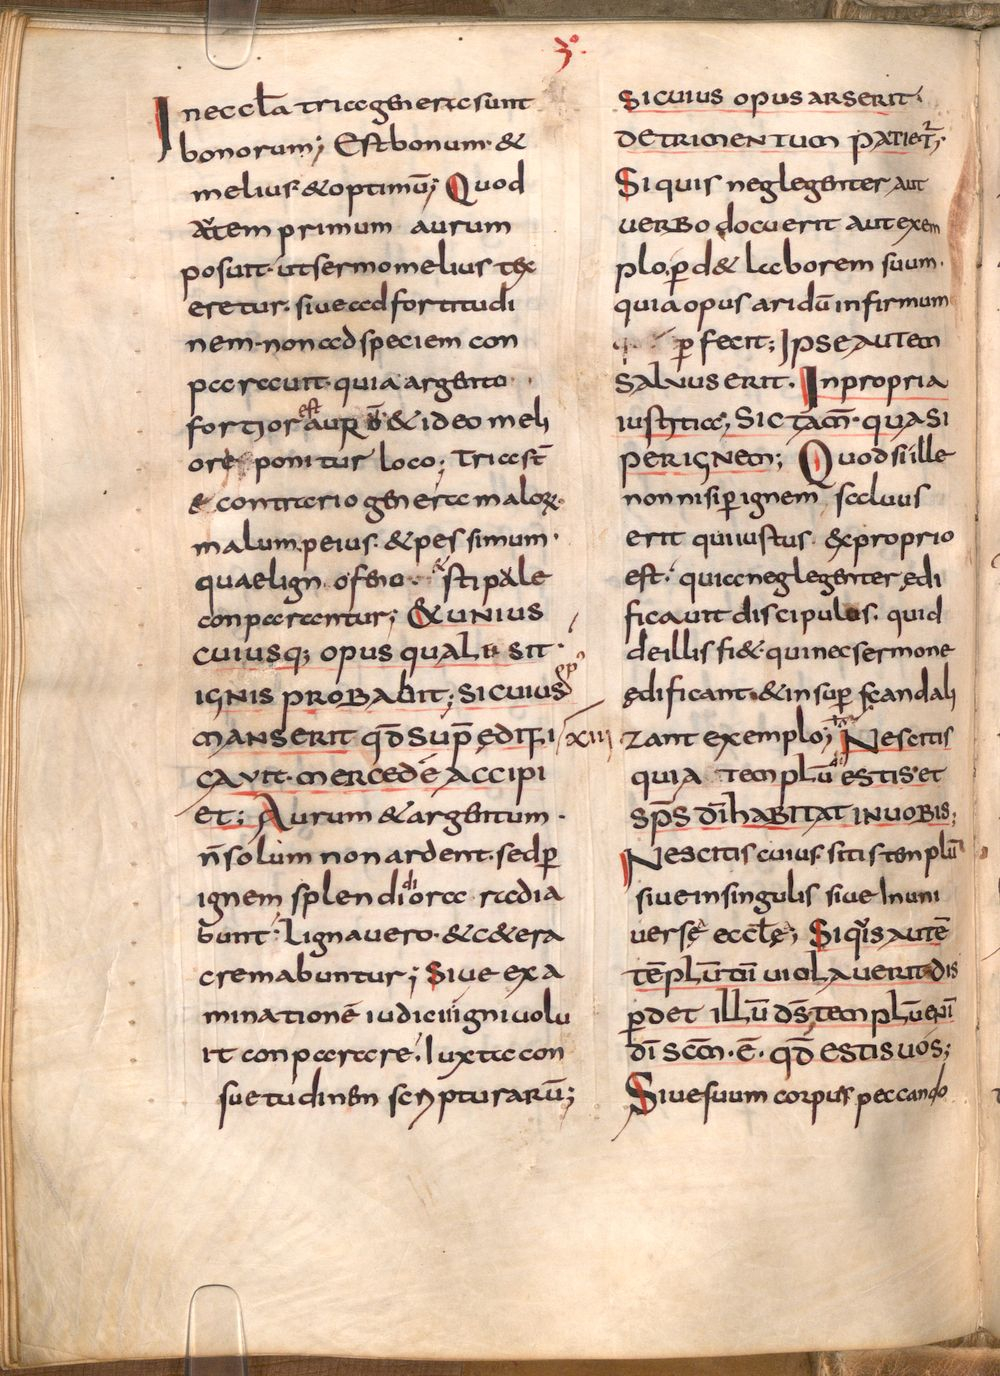 3°
In eccl̄a tria genera sunt
bonorum; Est bonum · &
melius · & optimū; Quod
aūtem primum aurum
posuit · ut sermo melius tex
eretur · siue ad fortitudi
nem · non ad speciem con
parauit · quia argento
fortior est auro · & ideo meli
ore ponitur loco; Tria st̄
& contrario genera malorꝝ ·
malum · peius · & pessimum ·
quae ligno · feno · & stipule
conparantur; & unius
cuiusq; opus quale sit ·
ignis probabit; Si cuius op̄
manserit qd̄ sup̄ ędifi
cauit · mercedē accipi
et; Aurum & argentum ·
n̄ solum non ardent · sed ꝑ
ignem splendidiora radia
bunt · Ligna uero · & c&era
cremabuntur; Siue exa
minationē iudicii igni uolu
it conparare · Iuxta con
suetudinem scripturarū;
XIII
Si cuius opus arserit ·
detrimentum patiet̄;
Si quis neglegenter aut
uerbo docuerit aut exem
plo · ꝑd& laborem suum ·
quia opus aridū infirmum
ꝑfecit; Ipse autem
saluus erit · In propria
iustitia; Sic tam̄ · quasi
per ignem; Quod si ille
non nisi ꝑ ignem saluus
erit qui iustus · ex proprio
est · quia neglegenter ędi
ficauit discipulos · quid
de illis fi& · qui nec sermone
ędificant · & insuꝑ scandali
zant exemplo; Nescitis
quia templū dī estis · et
sp̄s dī habitat in uobis;
Nescitis cuius sitis templū
siue in singulis siue In uni
uersę eccl̄ę; Si qͥs autē
tēplū dī uiolauerit dis
ꝑdet illū ds̄ templū enī
dī scm̄ · ē · qd̄ estis uos;
Siue suum corpus peccando